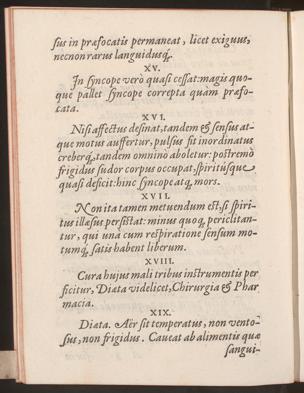 sus in præfocatis permaneat, licet exiguus,
necnon rarus languidusq;.
XV.
In syncope verò quasi cessat: magis quo-
que pallet syncope correpta quàm præfo-
cata.
XVI.
Nisi affectus desinat, tandem & sensus at-
que motus auffertur, pulsus fit inordinatus
creberq;, tandem omninò aboletur: postremò
frigidus sudor corpus occupat, spiritúsque
quasi deficit: hinc syncope atq; mors.
XVII.
Non ita tamen metuendum est, si spiri-
tus illæsus persistat: minus quoq; periclitan-
tur, qui unà cum respiratione sensum mo-
tumq; satis habent liberum.
XVIII.
Cura hujus mali tribus instrumentis per
ficitur, Diæta videlicet, Chirurgia & Phar
macia.
XIX.
Diæta. Aër sit temperatus, non vento-
sus, non frigidus. Caveat ab alimentis quæ
sangui-